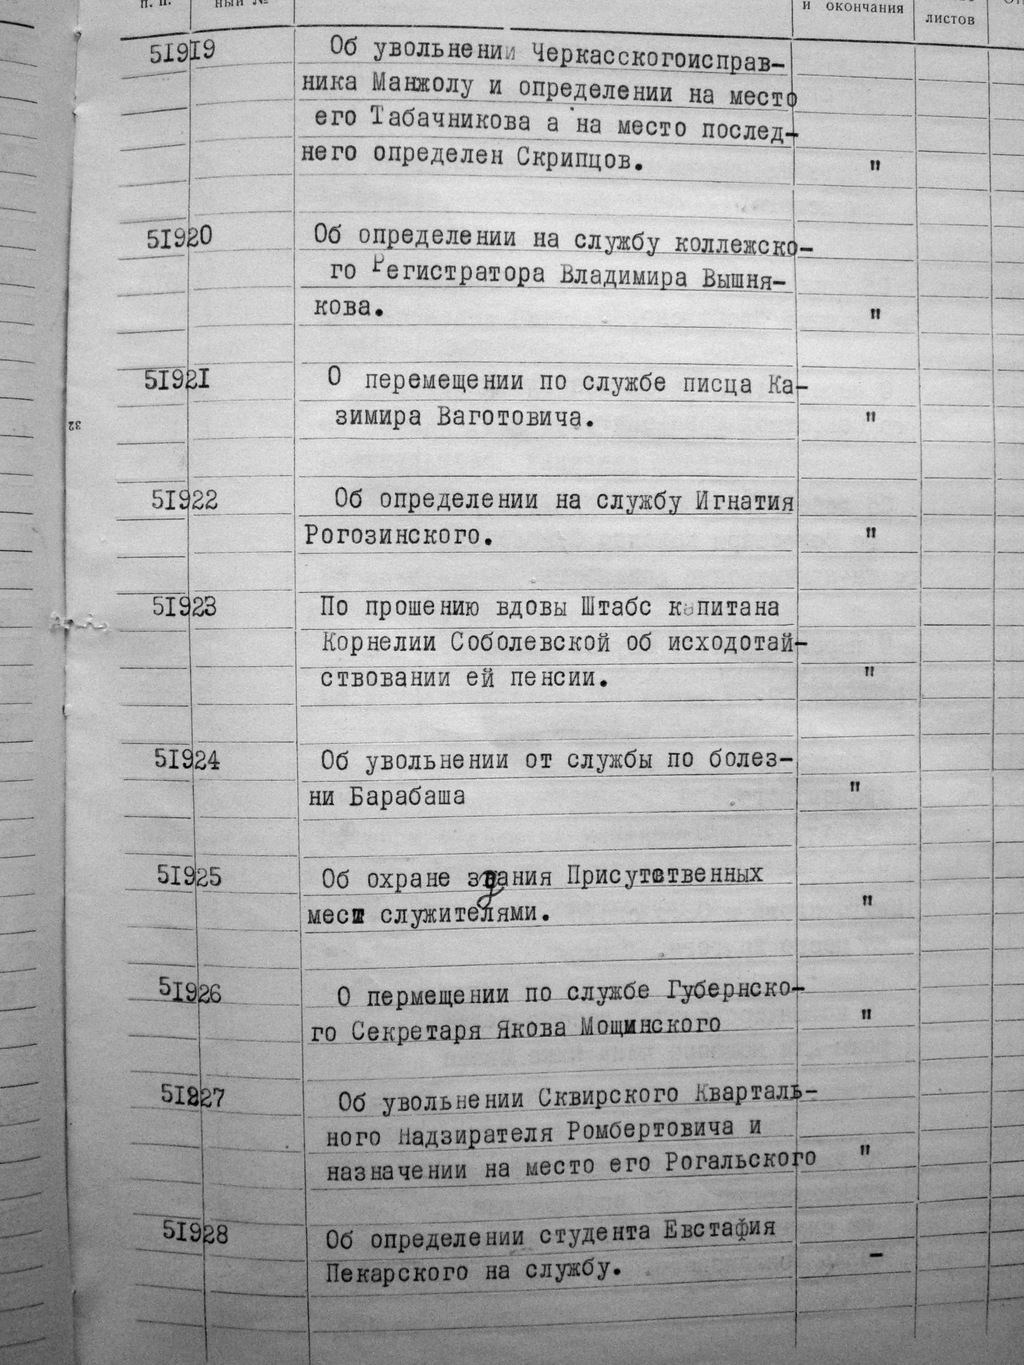 п. п.
ный №
и окончания
листов
51919 Об увольнении Черкасскогоисправ-
ника Манжолу и определении на место
его Табачникова а на место послед-
него определен Скрипцов. "
51920 Об определении на службу коллежско-
го Регистратора Владимира Вышня-
кова. "
51921 О перемещении по службе писца Ка-
зимира Ваготовича. "
32
51922 Об определении на службу Игнатия
Рогозинского. "
51923 По прошению вдовы Штабс капитана
Корнелии Соболевской об исходотай-
ствовании ей пенсии. "
51924 Об увольнении от службы по болез-
ни Барабаша "
51925 Об охране здания Присутственных
мест служителями. "
51926 О пермещении по службе Губернско-
го Секретаря Якова Мощинского "
51927 Об увольнении Сквирского Кварталь-
ного Надзирателя Ромбертовича и
назначении на место его Рогальского "
51928 Об определении студента Евстафия
Пекарского на службу. -